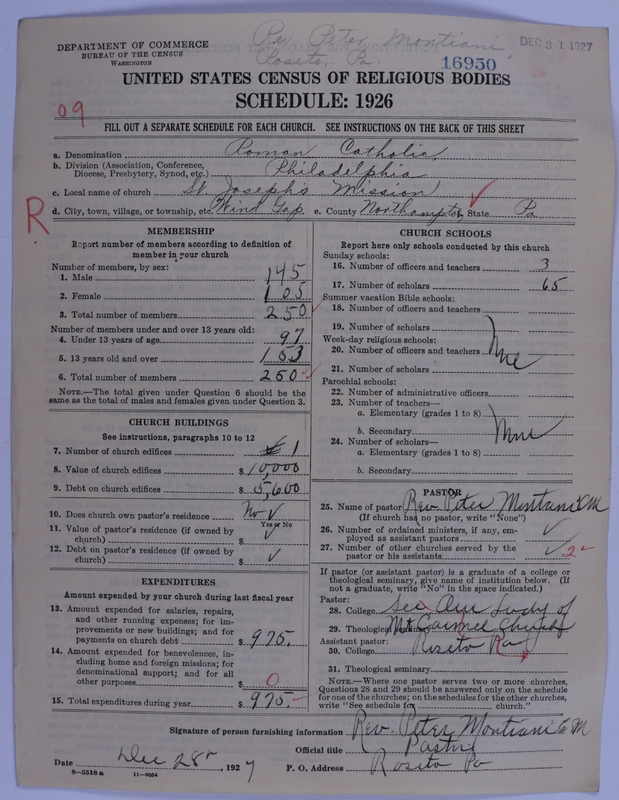 Rev Peter Montiani
Roseto Pa
DEC 31 1927
DEPARTMENT OF COMMERCE
BUREAU OF THE CENSUS
WASHINGTON
16950
UNITED STATES CENSUS OF RELIGIOUS BODIES
SCHEDULE: 1926
09
FILL OUT A SEPARATE SCHEDULE FOR EACH CHURCH. SEE INSTRUCTIONS ON THE BACK OF THIS SHEET
a. Denomination Roman Catholic
b. Division (Association, Conference, Diocese, Presbytery, Synod, etc.) Philadelphia
c. Local name of church St. Joseph's Mission
R
d. City, town, village, or township, etc. Wind Gap e. County Northampton State Pa
MEMBERSHIP
Report number of members according to definition of
member in your church
Number of members, by sex:
1. Male 145
2. Female 105
3. Total number of members 250
Number of members under and over 13 years old:
4. Under 13 years of age 97
5. 13 years old and over 153
6. Total number of members 250
NOTE.—The total given under Question 6 should be
same as the total of males and females given under Question 3.
CHURCH BUILDINGS
See instructions, paragraphs 10 to 12
7. Number of church edifices 1
8. Value of church edifices $ 10,000
9. Debt on church edifices $ 5,600
10. Does church own pastor's residence No
Yes or No
11. Value of pastor's residence (if owned by
church) $
12. Debt on pastor's residence (if owned by
church) $
EXPENDITURES
Amount expended by your church during last fiscal year
13. Amount expended for salaries, repairs,
and other running expenses; for im-
provements or new buildings; and for
payments on church debt $ 975.
14. Amount expended for benevolences, in-
cluding home and foreign missions; for
denominational support; and for all
other purposes $ 0
15. Total expenditures during year $ 975.
CHURCH SCHOOLS
Report here only schools conducted by this church
Sunday schools:
16. Number of officers and teachers 3
17. Number of scholars 65
Summer vacation Bible schools:
18. Number of officers and teachers
19. Number of scholars
Week-day religious schools:
20. Number of officers and teachers None
21. Number of scholars
Parochial schools:
22. Number of administrative officers
23. Number of teachers—
a. Elementary (grades 1 to 8)
b. Secondary None
24. Number of scholars—
a. Elementary (grades 1 to 8)
b. Secondary
PASTOR
25. Name of pastor Rev. Peter Montiani C.M
(If church has no pastor, write "None")
26. Number of ordained ministers, if any, em-
ployed as assistant pastors
27. Number of other churches served by the
pastor or his assistants 2
If pastor (or assistant pastor) is a graduate of a college or
theological seminary, give name of institution below. (If
not a graduate, write "No" in the space indicated.)
Pastor:
28. College See Our Lady of
29. Theological seminary Mt Carmel Church
Assistant pastor: Roseto Pa
30. College
31. Theological seminary
NOTE.—Where one pastor serves two or more churches,
Questions 28 and 29 should be answered only on the schedule
for one of the churches; on the schedules for the other churches,
write "See schedule for church."
Signature of person furnishing information Rev. Peter Montiani C M
Official title Pastor
Date Dec 28 , 1927 P. O. Address Roseto Pa
8—5518a 11—9654